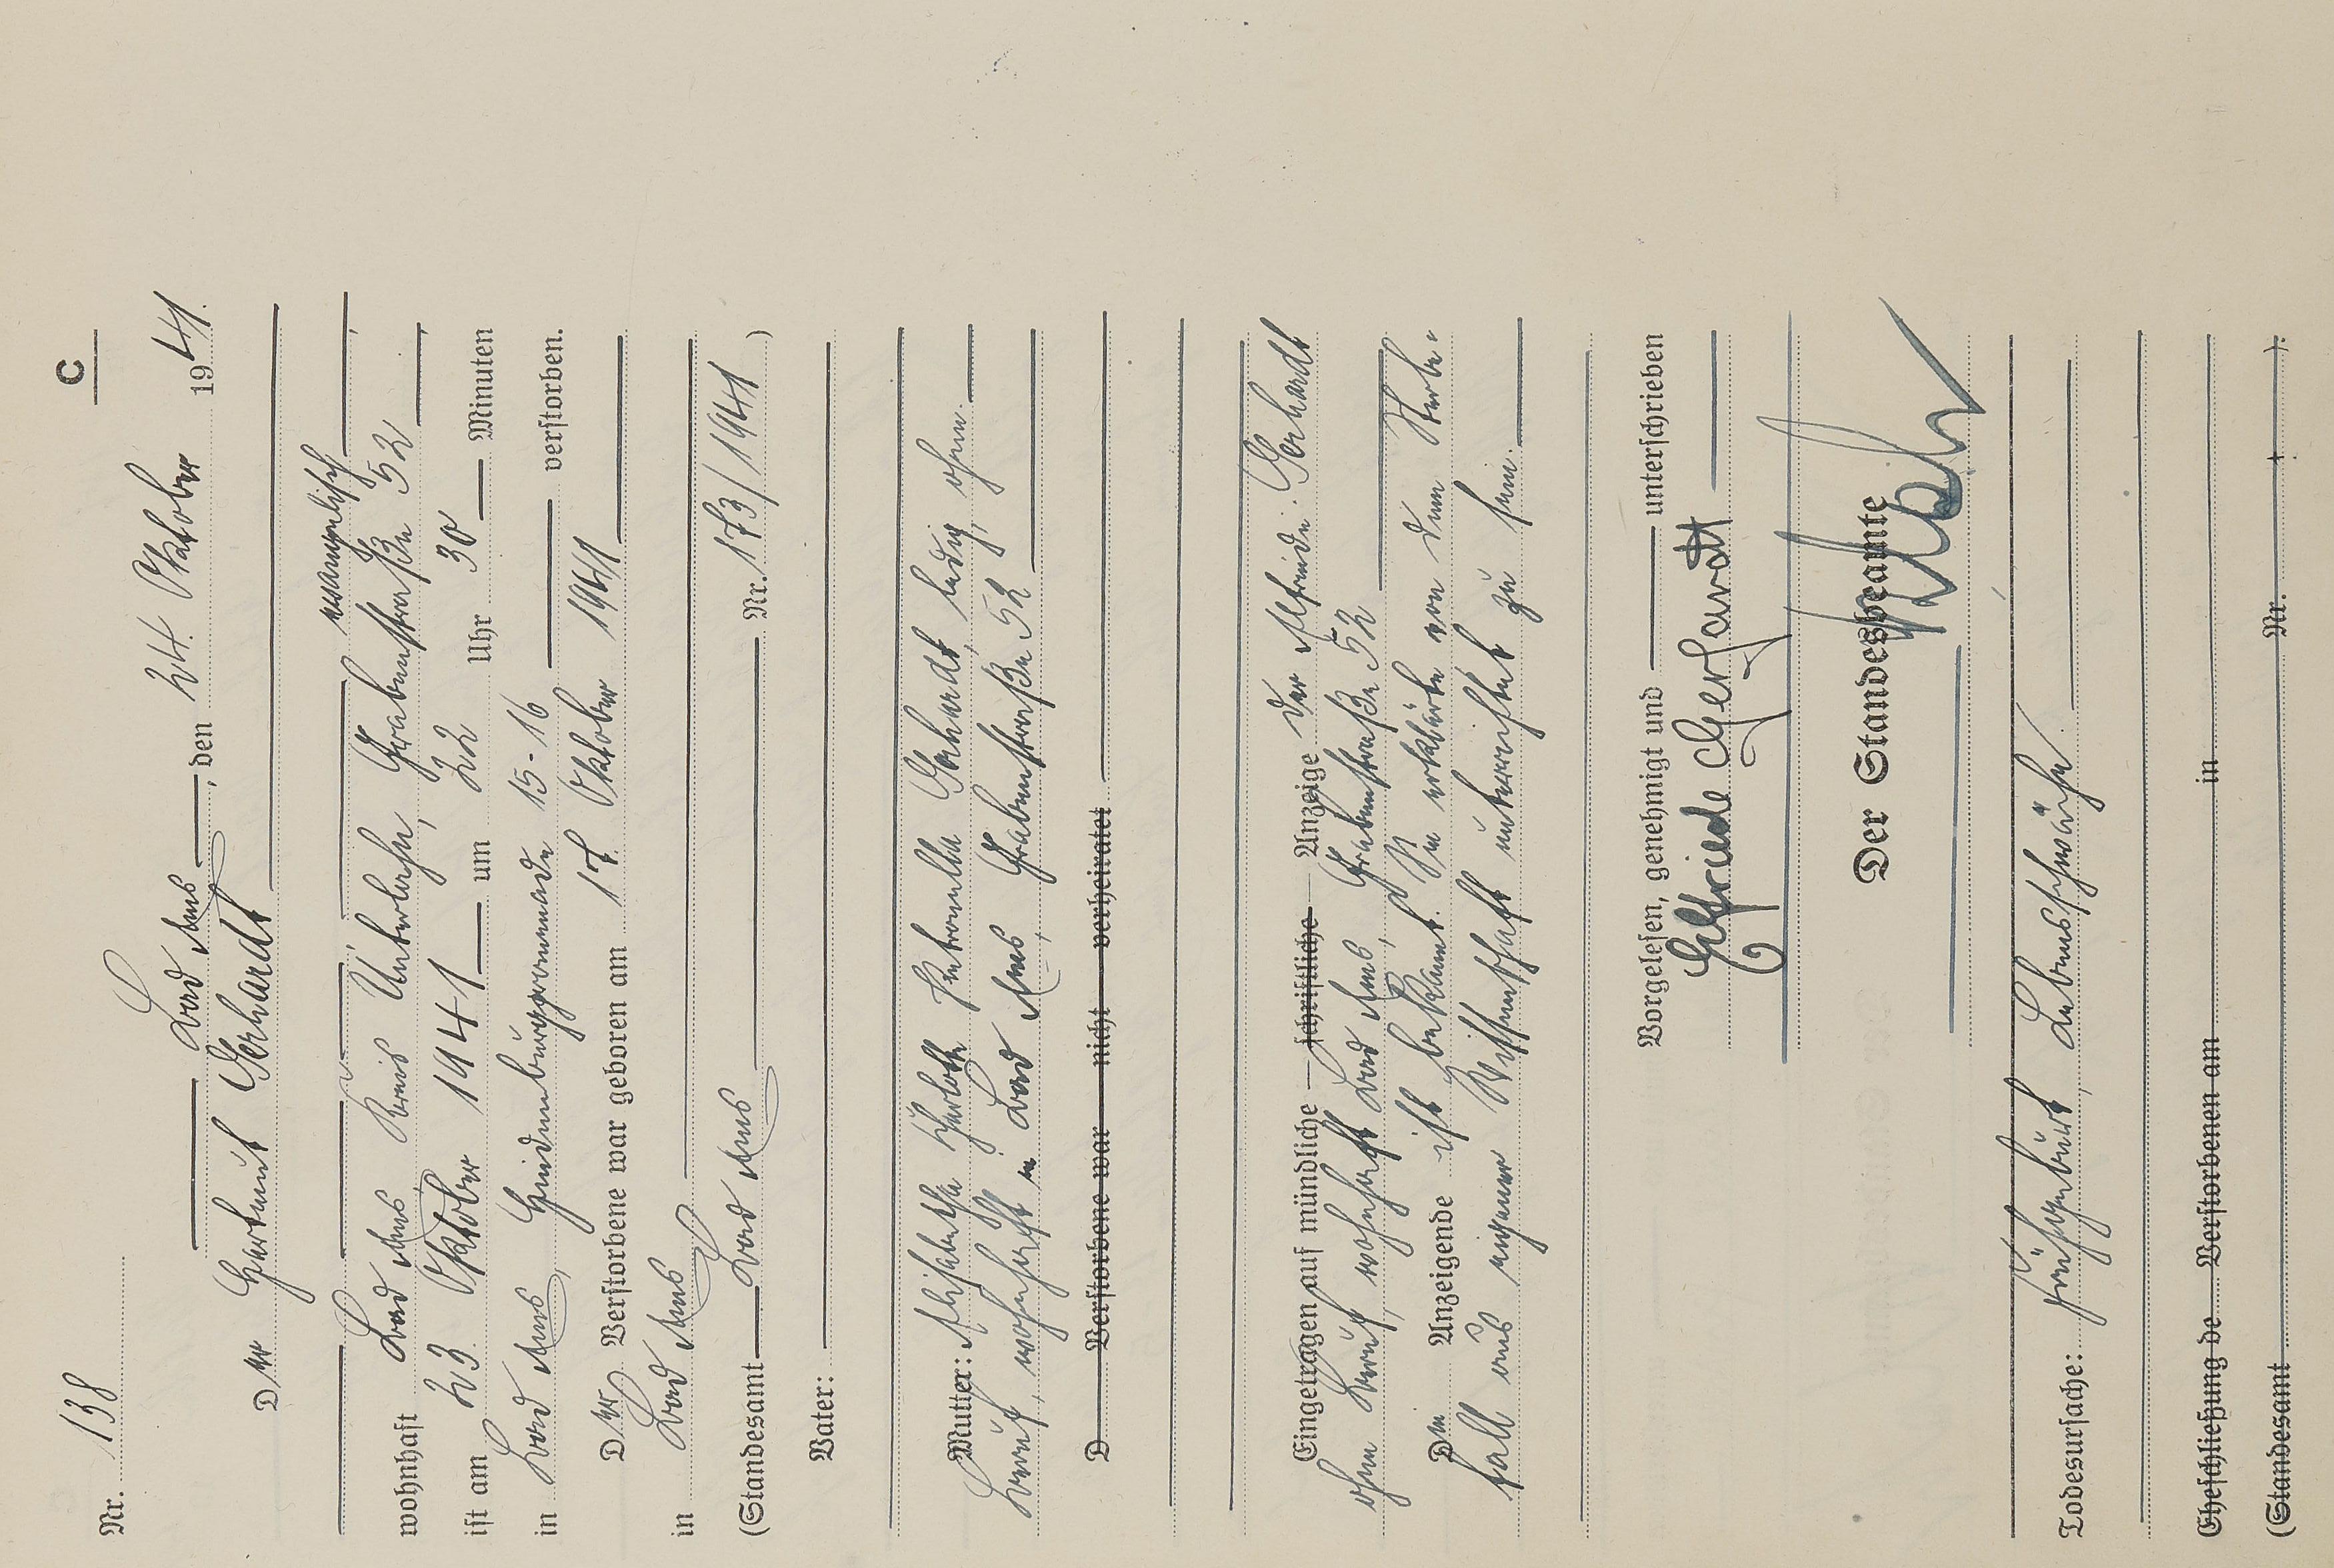 C
Nr. 138
Bad Ems, den 24. Oktober 1941.
Der Hartmut Gerhardt
evangelisch
wohnhaft Bad Ems, Kreis Unterlahn, Grabenstraße 52
ist am 23. Oktober 1941 um 22 Uhr 30 Minuten
in Bad Ems, Hindenburgpromenade 15-16 verstorben.
Der Verstorbene war geboren am 17. Oktober 1941
in Bad Ems
(Standesamt Bad Ems Nr. 173/1941)
Vater:
Mutter: Elisabetha Charlotte Petronella Gerhardt, ledig, ohne
Beruf, wohnhaft in Bad Ems, Grabenstraße 52
D Verstorbene war nicht verheiratet
Eingetragen auf mündliche schriftliche Anzeige der Elfriede Gerhardt
ohne Beruf, wohnhaft Bad Ems, Grabenstraße 52
Die Anzeigende ist bekannt. Sie erklärte von dem Sterbe-
fall aus eigener Wissenschaft unterrichtet zu sein.
Vorgelesen, genehmigt und unterschrieben
Elfriede Gerhardt
Der Standesbeamte
Todesursache: Frühgeburt, Lebensschwäche.
Eheschließung de Verstorbenen am in
(Standesamt Nr. ).